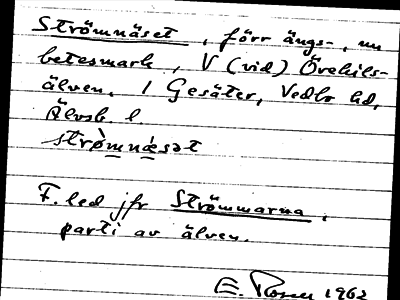 Strömnäset, förr ängs-, nu
betesmark, V (vid) Örekils-
älven. 1 Gesäter, Vedbo hd,
Älvsb. l.
strò̱mnæ̱sət
F. led jfr Strömmarna,
parti av älven.
E. 1962